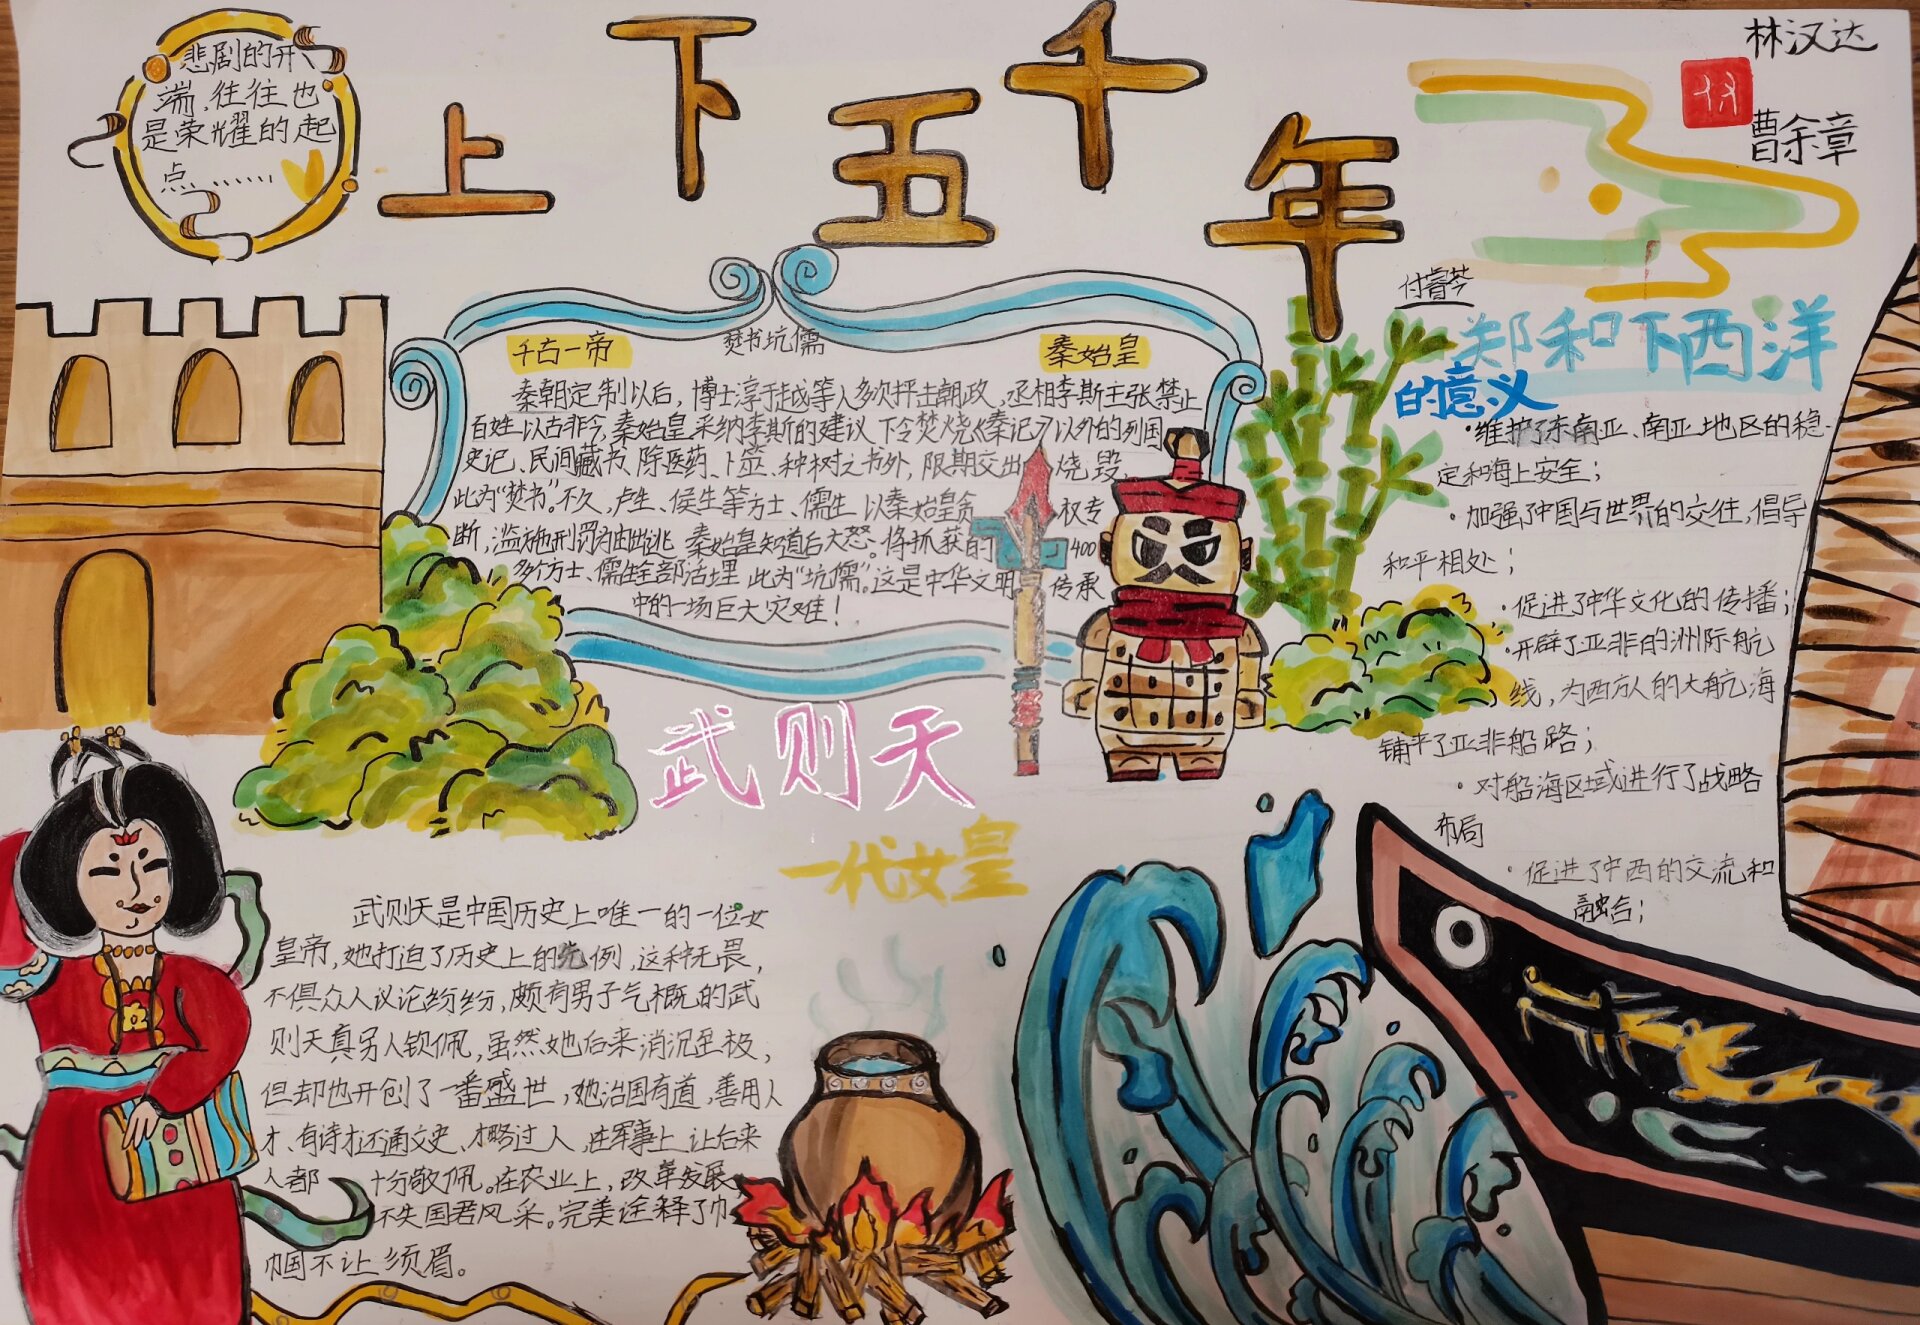 悲剧的开
端,往往也
是荣耀的起
点……
上下五千年
林汉达
曹余章
付睿芩
千古一帝
焚书坑儒
秦始皇
秦朝定制以后,博士淳于越等人多次抨击朝政,丞相李斯主张禁止
百姓以古非今,秦始皇采纳李斯的建议 下令焚烧《秦记》以外的列国
史记、民间藏书、除医药、卜筮、种树之书外,限期交出 烧毁,
此为“焚书”。不久,卢生、侯生等方士、儒生 以秦始皇贪 权专
断,滥施刑罚为由出逃 秦始皇知道后大怒。将抓获的 400
多个方士、儒生全部活埋 此为“坑儒”。这是中华文明 传承
中的一场巨大灾难!
郑和下西洋
的意义
·维护了东南亚、南亚地区的稳
定和海上安全;
·加强了中国与世界的交往,倡导
和平相处;
·促进了中华文化的传播;
·开辟了亚非的洲际航
线,为西方人的大航海
铺平了亚非船路;
·对船海区域进行了战略
布局
·促进了中西的交流和
融合;
武则天
一代女皇
武则天是中国历史上唯一的一位女
皇帝,她打迫了历史上的先例,这种无畏,
不俱众人议论纷纷,颇有男子气概的武
则天真另人钦佩,虽然她后来消沉至极,
但却也开创了一番盛世,她治国有道,善用人
才、有诗才还通文史、才略过人,在军事上,让后来
人都 十分敬佩。在农业上,改革发展,
不失国君风采。完美诠释了巾
巾国不让须眉。